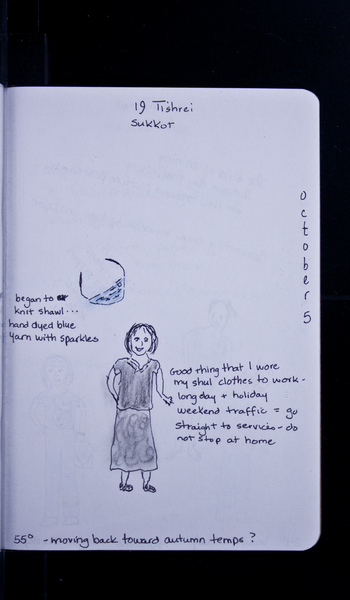 19 Tishrei
Sukkot
October 5
began to
knit shawl...
hand dyed blue
yarn with sparkles
Good thing that I wore
my shul clothes to work -
long day + holiday
weekend traffic = go
straight to services - do
not stop at home
55° - moving back toward autumn temps?